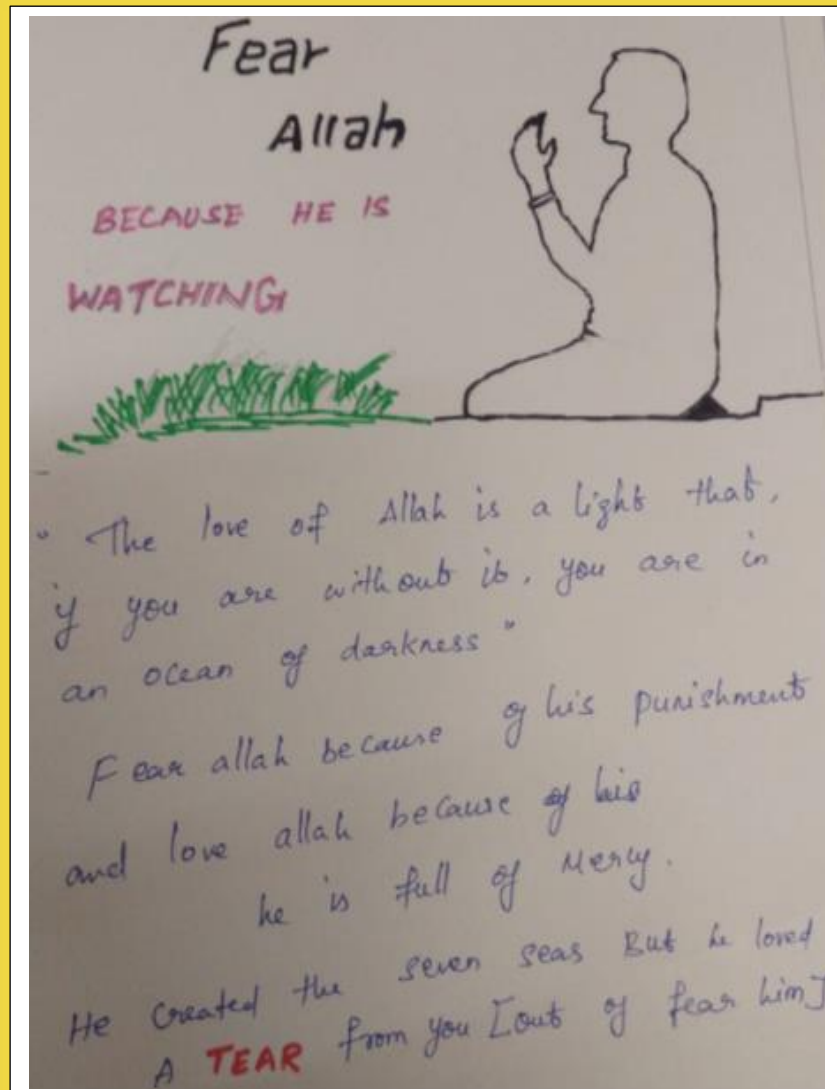 Fear
Allah
BECAUSE HE IS
WATCHING
" The love of Allah is a light that,
if you are without it, you are in
an ocean of darkness "
Fear allah because of his punishment
and love allah because of his
he is full of Mercy.
He created the seven seas But he loved
A TEAR from you [out of fear him]